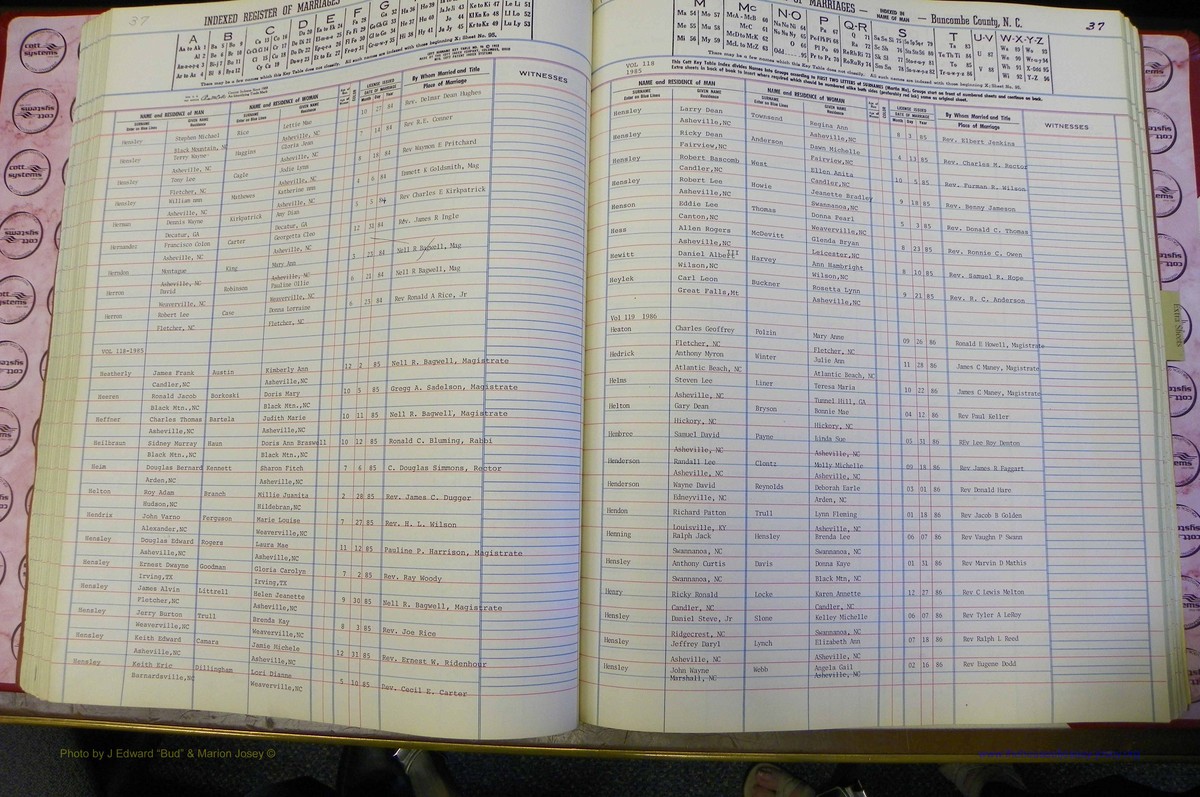 37
INDEXED REGISTER OF MARRIAGES
WITNESSES
NAME and RESIDENCE OF MAN
NAME and RESIDENCE OF WOMAN
By Whom Married and Title
Place of Marriage
Hensley Stephen Michael Rice Lettie Mae 10 27 84 Rev. Delmar Dean Hughes
Black Mountain, NC Asheville, NC
Hensley Terry Wayne Haggins Gloria Jean 7 14 84 Rev R.E. Conner
Asheville, NC Asheville, NC
Hensley Tony Lee Cagle Judie Lynn 8 18 84 Rev Waymon E Pritchard
Fletcher, NC Asheville, NC
Hensley William ann Mathewes Katherine ann 4 6 84 Emmett K Goldsmith, Mag
Asheville, NC Asheville, NC
Herman Dennis Wayne Kirkpatrick Amy Dian 5 84 Rev Charles E Kirkpatrick
Decatur, GA Decatur, GA
Hernandez Francisco Colon Carter Georgetta Cleo 12 31 84 Rev. James R Ingle
Asheville, NC Asheville, NC
Herndon Montague King Mary Ann 3 23 84 Nell R Bagwell, Mag
Asheville, NC Asheville, NC
Herron David Robinson Pauline Ollie 6 21 84 Nell R Bagwell, Mag
Weaverville, NC Weaverville, NC
Herron Robert Lee Cave Donna Lorraine 6 23 84 Rev Ronald A Rice, Jr
Fletcher, NC Fletcher, NC
VOL 118-1985
Heatherly James Frank Austin Kimberly Ann 12 2 85 Nell R. Bagwell, Magistrate
Candler,NC Asheville,NC
Heeren Ronald Jacob Borkoski Doris Mary 10 5 85 Gregg A. Sadelson, Magistrate
Black Mtn.,NC Black Mtn.,NC
Heffner Charles Thomas Bartela Judith Marie 10 11 85 Nell R. Bagwell, Magistrate
Asheville,NC Asheville,NC
Heilbraun Sidney Murray Haun Doris Ann Braswell 10 12 85 Ronald C. Bluming, Rabbi
Black Mtn.,NC Black Mtn.,NC
Heim Douglas Bernard Kennett Sharon Fitch 7 6 85 C. Douglas Simmons, Rector
Arden,NC Asheville,NC
Helton Roy Adam Branch Millie Juanita 2 20 85 Rev. James C. Dugger
Hudson,NC Hildebran,NC
Hendris John Varno Ferguson Marie Louise 7 27 85 Rev. H. L. Wilson
Alexander,NC Weaverville,NC
Hensley Douglas Edward Rogers Laura Mae 11 12 85 Pauline P. Harrison, Magistrate
Asheville,NC Asheville,NC
Hensley Ernest Dwayne Goodman Gloria Carolyn 7 2 85 Rev. Ray Woody
Irving,TX Irving,TX
Hensley James Alvin Littrell Helen Jeanette 9 30 85 Nell R. Bagwell, Magistrate
Fletcher,NC Asheville,NC
Hensley Jerry Burton Trull Brenda Kay 8 3 85 Rev. Joe Rice
Weaverville,NC Weaverville,NC
Hensley Keith Edward Camara Jamie Michele 12 31 85 Rev. Ernest W. Ridenhour
Asheville,NC Asheville,NC
Hensley Keith Eric Dillingham Lori Dianne 5 10 85 Rev. Cecil E. Carter
Barnardsville,NC Weaverville,NC
OF MARRIAGES — INDEXED IN NAME OF MAN — Buncombe County, N. C.
37
VOL 118
1985
NAME and RESIDENCE OF MAN
NAME and RESIDENCE OF WOMAN
By Whom Married and Title
Place of Marriage
WITNESSES
Hensley Larry Dean Townsend Regina Ann 8 3 85 Rev. Elbert Jenkins
Asheville,NC Asheville,NC
Hensley Ricky Dean Anderson Dawn Michelle 4 13 85 Rev. Charles M. Rector
Fairview,NC Fairview,NC
Hensley Robert Bascomb West Ellen Anita 10 5 85 Rev. Furman R. Wilson
Candler,NC Candler,NC
Hensley Robert Lee Howie Jeanette Bradley 9 18 85 Rev. Benny Jameson
Asheville,NC Swannanoa,NC
Henson Eddie Lee Thomas Donna Pearl 5 3 85 Rev. Donald C. Thomas
Canton,NC Weaverville,NC
Hess Allen Rogers McDevitt Glenda Bryan 8 23 85 Rev. Ronnie C. Owen
Asheville,NC Leicester,NC
Hewitt Daniel Albert III Harvey Ann Hambright 8 10 85 Rev. Samuel R. Hope
Wilson,NC Wilson,NC
Heylek Carl Leon Buckner Rosetta Lynn 9 21 85 Rev. R. C. Anderson
Great Falls,Mt Asheville,NC
Vol 119 1986
Heaton Charles Geoffrey Polzin Mary Anne 09 26 86 Ronald E Howell, Magistrate
Fletcher, NC Fletcher, NC
Hedrick Anthony Myron Winter Julie Ann 11 28 86 James C Maney, Magistrate
Atlantic Beach, NC Atlantic Beach, NC
Helms Steven Lee Liner Teresa Maria 10 22 86 James C Maney, Magistrate
Asheville, NC Tunnel Hill, GA
Helton Gary Dean Bryson Bonnie Mae 04 12 86 Rev Paul Keller
Hickory, NC Hickory, NC
Hembree Samuel David Payne Linda Sue 05 31 86 REv Lee Roy Denton
Asheville, NC Asheville, NC
Henderson Randall Lee Clontz Molly Michelle 09 18 86 Rev James R Faggart
Asheville, NC Asheville, NC
Henderson Wayne David Reynolds Deborah Earle 03 01 86 Rev Donald Hare
Edneyville, NC Arden, NC
Hendon Richard Patton Trull Lynn Fleming 01 18 86 Rev Jacob B Golden
Louisville, KY Asheville, NC
Henning Ralph Jack Hensley Brenda Lee 06 07 86 Rev Vaughn P Swann
Swannanoa, NC Swannanoa, NC
Hensley Anthony Curtis Davis Donna Kaye 01 31 86 Rev Marvin D Mathis
Swannanoa, NC Black Mtn, NC
Henry Ricky Ronald Locke Karen Annette 12 27 86 Rev C Lewis Melton
Candler, NC Candler, NC
Hensley Daniel Steve, Jr Slone Kelley Michelle 06 07 86 Rev Tyler A LeRoy
Ridgecrest, NC Swannanoa, NC
Hensley Jeffrey Daryl Lynch Elizabeth Ann 07 18 86 Rev Ralph L Reed
Asheville, NC ASheville, NC
Hensley John Wayne Webb Angela Gail 02 16 86 Rev Eugene Dodd
Marshall, NC Asheville, NC
Photo by J Edward "Bud" & Marion Josey ©